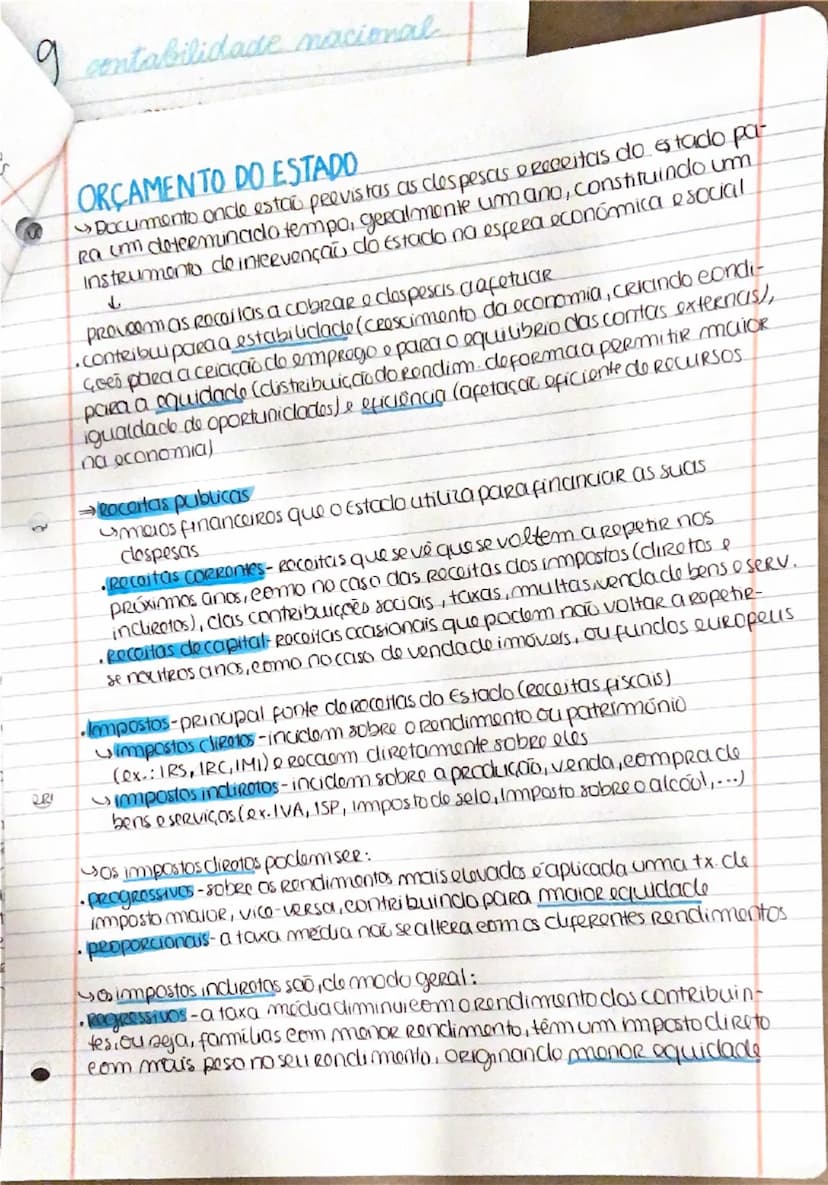 9 contabilidade nacional
ORÇAMENTO DO ESTADO
↳ Documento onde estão previstas as despesas e receitas do Estado pa-
ra um determinado tempo, geralmente um ano, constituindo um
instrumento de intervenção do Estado na esfera económica e social
↓
preveem as receitas a cobrar e despesas a efetuar
. contribui para a estabilidade (crescimento da economia, criando condi-
ções para a criação de emprego e para o equilíbrio das contas externas),
para a equidade (distribuição do rendim. de forma a permitir maior
igualdade de oportunidades) e eficiência (afetação eficiente de recursos
na economia)
⇒ Receitas publicas
↳ meios financeiros que o Estado utiliza para financiar as suas
despesas
. Receitas correntes - receitas que se vê que se voltem a repetir nos
próximos anos, como no caso das receitas dos impostos (diretos e
indiretos), das contribuições sociais, taxas, multas, venda de bens e serv.
. Receitas de capital - receitas ocasionais que podem não voltar a repetir-
se noutros anos, como no caso de venda de imóveis, ou fundos europeus
. Impostos - principal fonte de receitas do Estado (receitas fiscais)
↳ impostos diretos - incidem sobre o rendimento ou património
(ex.: IRS, IRC, IMI) e recaem diretamente sobre eles
↳ impostos indiretos - incidem sobre a produção, venda, compra de
bens e serviços (ex. IVA, ISP, imposto de selo, imposto sobre o alcoól, ...)
↳ os impostos diretos podem ser:
. progressivos - sobre os rendimentos mais elevados é aplicada uma tx. de
imposto maior, vice-versa, contribuindo para maior equidade
. proporcionais - a taxa média não se altera com os diferentes rendimentos
↳ os impostos indiretos são, de modo geral:
. Regressivos - a taxa média diminui com o rendimento dos contribuin-
tes, ou seja, famílias com menor rendimento, têm um imposto direto
com mais peso no seu rendimento, originando menor equidade